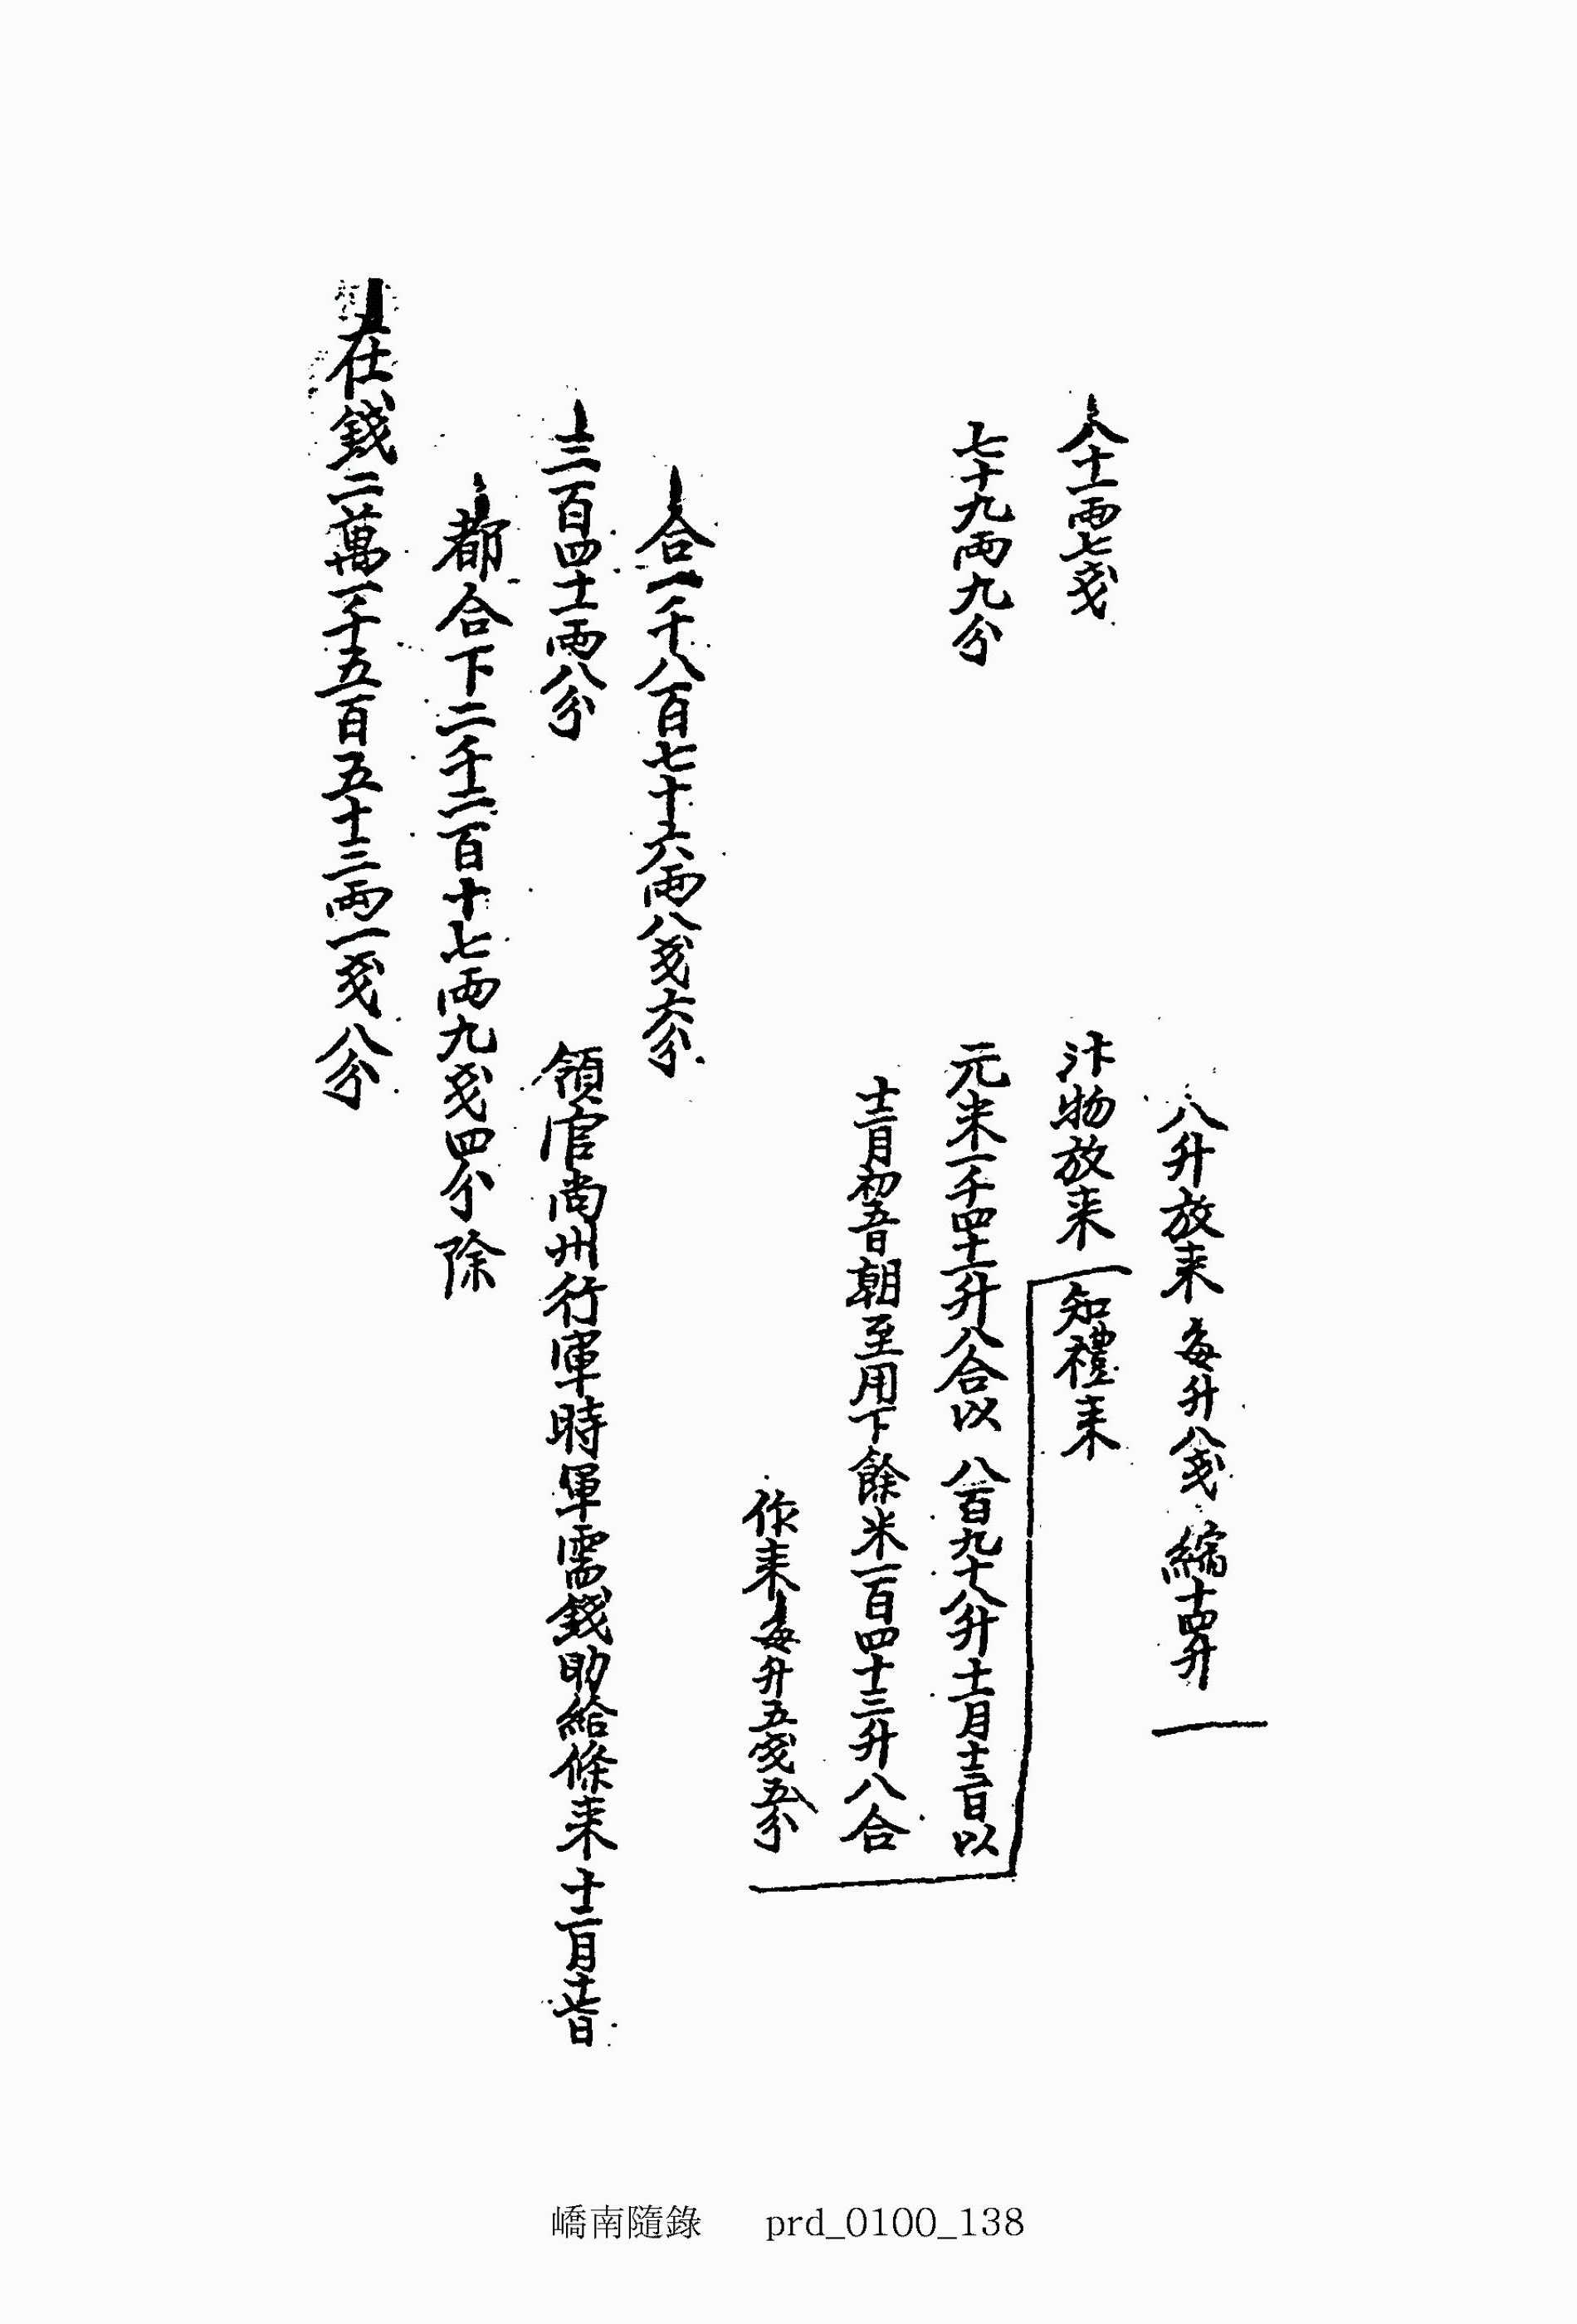 八升放来 每升八戔 縮十四升
八十一両七戔 汴物放来 知禮来
七十九両九分 元米一千四十一升八合以 八百九十八升 十一月十三日以
十二月初五日朝至用下餘米一百四十三升八合
作来 每升五戔五分
合一千八百七十六両八戔六分
三百四十一両八分 領官尚州行軍時軍需錢助給條来 十二月十七日
都合下二千二百十七両九戔四分 除
在錢二萬一千五百五十三両一戔八分
嶠南隨錄 prd_0100_138